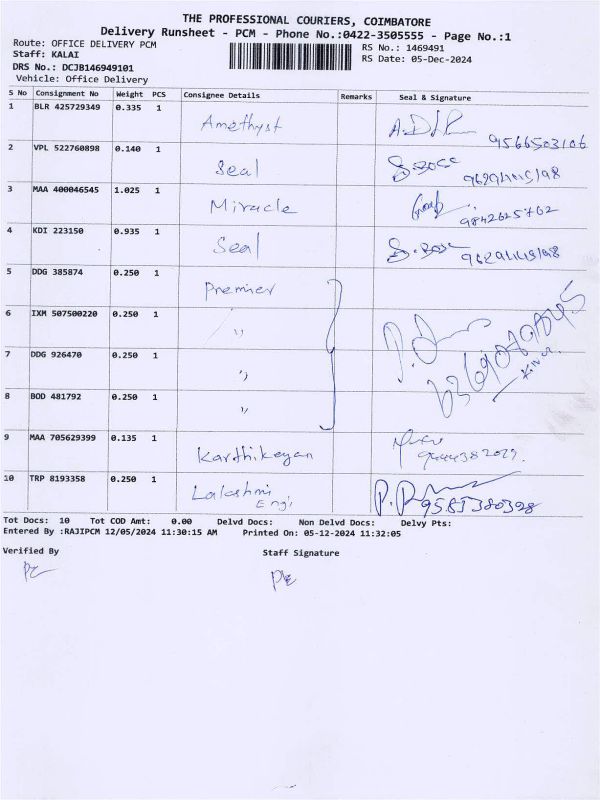 THE PROFESSIONAL COURIERS, COIMBATORE
Delivery Runsheet - PCM - Phone No.:0422-3505555 - Page No.:1
Route: OFFICE DELIVERY PCM
RS No.: 1469491
Staff: KALAI
RS Date: 05-Dec-2024
DRS No.: DCJB146949101
Vehicle: Office Delivery
S No Consignment No Weight PCS Consignee Details Remarks Seal & Signature
1 BLR 425729349 0.335 1 Amethyst 9566503106
2 VPL 522760898 0.140 1 Seal S. Bose
3 MAA 400046545 1.025 1 Miracle 9842625762
4 KDI 223150 0.935 1 Seal S. Bose
5 DDG 385874 0.250 1 Premier
6 IXM 507500220 0.250 1 ,,
7 DDG 926470 0.250 1 ,,
8 BOD 481792 0.250 1 ,,
9 MAA 705629399 0.135 1 Karthikeyan
10 TRP 8193358 0.250 1 Lakshmi Engi 9585380398
Tot Docs: 10 Tot COD Amt: 0.00 Delvd Docs: Non Delvd Docs: Delvy Pts:
Entered By :RAJIPCM 12/05/2024 11:30:15 AM Printed On: 05-12-2024 11:32:05
Verified By Staff Signature